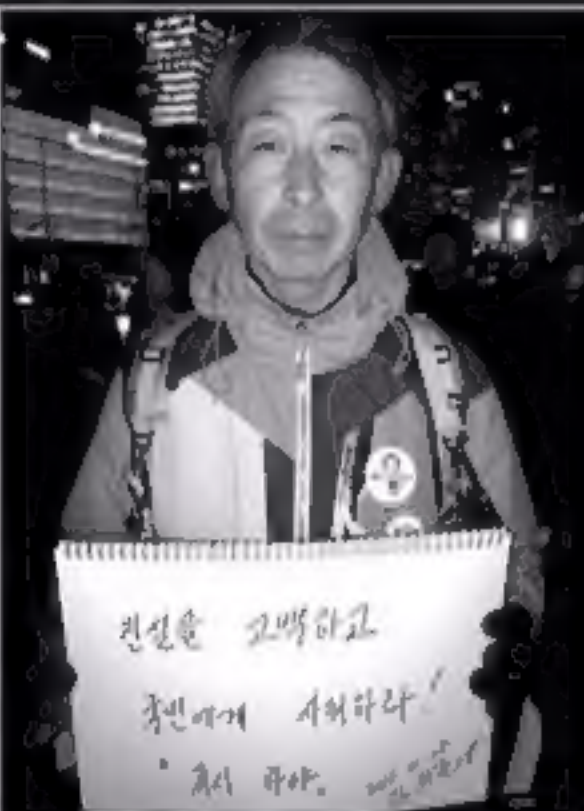 진실을 고백하고
국민에게 사죄하라!
즉시 하야.